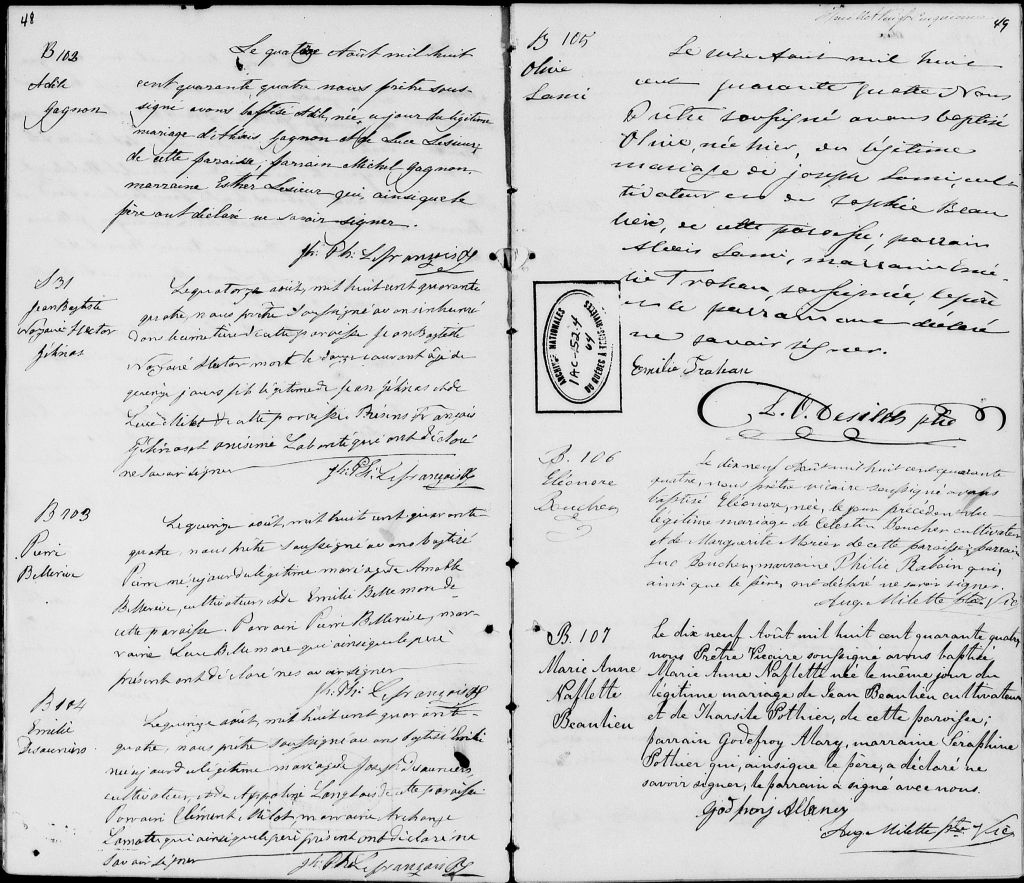 48
B 102
Adèle
Gagnon
Le quatorze Août mil huit
cent quarante quatre nous prêtre sous-
signé avons baptisé Adèl, née, ce jour du légitime
mariage de Gagnon & de Luce Lesieur
de cette paroisse; parrain Michel Gagnon
marraine Esther Lesieur qui, ainsi que le
père ont déclaré ne savoir signer.
Jh. Ph. Lefrançois
S 31
Jean Baptiste
Nazaire Hector
Gélinas
Le quatorze août, mil huit cent quarante
quatre, nous prêtre soussigné avons inhumé
dans le cimetière de cette paroisse Jean Baptiste
Nazaire Hector mort le douze courant âgé de
quinze jours fils légitime de Jean Gélinas et de
Luce Milot de cette paroisse. Présens François
Gélinas et Onésime Labonté qui ont déclaré
ne savoir signer
Jh. Ph. Lefrançois
B 103
Pierre
Bellerive
Le quinze août, mil huit cent quarante-
quatre, nous prêtre soussigné avons baptisé
Pierre né ce jour du légitime mariage de Amable
Bellerive, cultivateur, et de Emilie Bellemore de
cette paroisse. Parrain Pierre Bellerive, mar-
raine Luce Bellemore qui ainsi que le père
présent ont déclaré ne savoir signer
Jh. Ph. Lefrançois
B 104
Emilie
Desauniers
Le quinze août, mil huit cent quarante-
quatre, nous prêtre soussigné avons baptisé Emilie
née ce jour du légitime mariage de Joseph Desauniers
cultivateur, et de Appoline Langlais de cette paroisse
Parrain Clément Milot, marraine Archange
Lamotte qui ainsi que le père présent ont déclaré ne
savoir signer
Jh. Ph. Lefrançois
49
B 105
Olive
Lami
Le seize Août mil huit
cent quarante quatre Nous
Prêtre soussigné avons baptisé
Olive, née hier, du légitime
mariage de Joseph Lami, cul-
tivateur et de Sophie Beau
lieu, de cette paroisse; parrain
Alexis Lami, marraine Emé-
lie Trahan, soussignée, le père
et le parrain ont déclaré
ne savoir signer.
Emélie Trahan
L. O. Desilets ptre
ARCHIVES NATIONALES
1AC-52.4
64
DU QUÉBEC À TROIS-RIVIÈRES
B. 106
Eléonore
Boucher
Le dix neuf Août mil huit cent quarante
quatre, nous prêtre vicaire soussigné avons
baptisé Eléonore, née, le jour précédent du
légitime mariage de Célestin Boucher cultivateur
et de Marguerite Morier de cette paroisse; parrain
Luc Boucher, marraine Philie Rabouin qui,
ainsi que le père, ont déclaré ne savoir signer.
Aug. Milette ptre Vic
B. 107
Marie Anne
Naflette
Beaulieu
Le dix neuf Août mil huit cent quarante quatre,
nous Prêtre Vicaire soussigné avons baptisé
Marie Anne Naflette née le même jour du
légitime mariage de Jean Beaulieu cultivateur
et de Tharsile Pothier, de cette paroisse;
parrain Godefroy Alary, marraine Séraphine
Pothier qui, ainsi que le père, a déclaré ne
savoir signer, le parrain a signé avec nous.
Godfroy
Aug. Milette ptre Vic